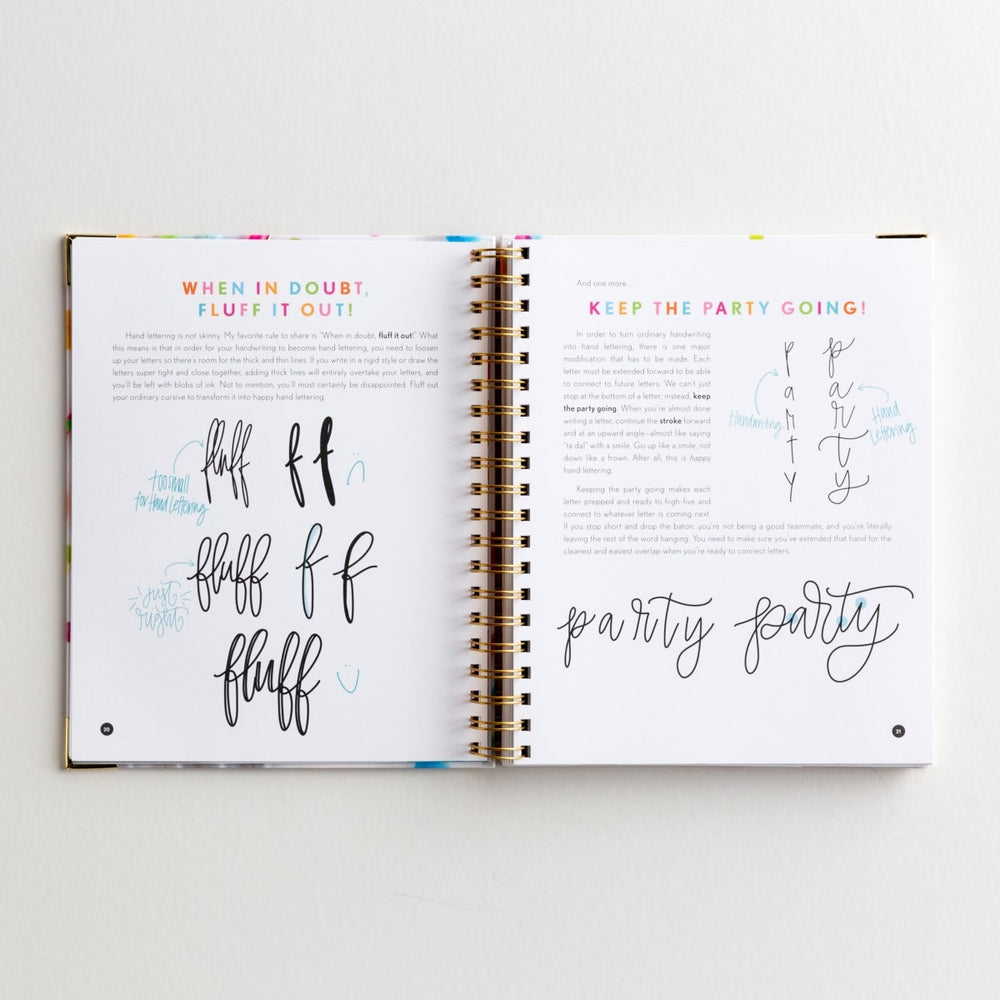 WHEN IN DOUBT,
FLUFF IT OUT!
Hand lettering is not skinny. My favorite rule to share is "When in doubt, fluff it out!" What
this means is that in order for your handwriting to become hand lettering, you need to loosen
up your letters so there's room for the thick and thin lines. If you write in a rigid style or draw the
letters super tight and close together, adding thick lines will entirely overtake your letters, and
you'll be left with blobs of ink. Not to mention, you'll most certainly be disappointed. Fluff out
your ordinary cursive to transform it into happy hand lettering.
fluff f f
too small
for Hand Lettering
fluff f f
just
right
fluff
20
And one more...
KEEP THE PARTY GOING!
In order to turn ordinary handwriting
into hand lettering, there is one major
modification that has to be made. Each
letter must be extended forward to be able
to connect to future letters. We can't just
stop at the bottom of a letter; instead, keep
the party going. When you're almost done
writing a letter, continue the stroke forward
and at an upward angle—almost like saying
"ta da!" with a smile. Go up like a smile, not
down like a frown. After all, this is happy
hand lettering.
Keeping the party going makes each
letter prepped and ready to high-five and
connect to whatever letter is coming next.
If you stop short and drop the baton...you're not being a good teammate, and you're literally
leaving the rest of the word hanging. You need to make sure you've extended that hand for the
cleanest and easiest overlap when you're ready to connect letters.
p
a
r
t
y
Handwriting
p
a
r
t
y
Hand
Lettering
party party
21